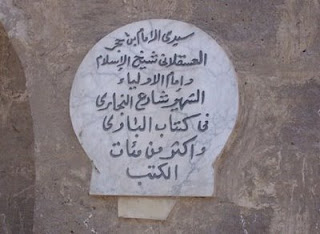 سيدى الإمام بن حجر
العسقلانى شيخ الإسلام
وإمام الأولياء
الشهير شارع البخارى
فى كتاب البارى
واكثر من مئات
الكتب